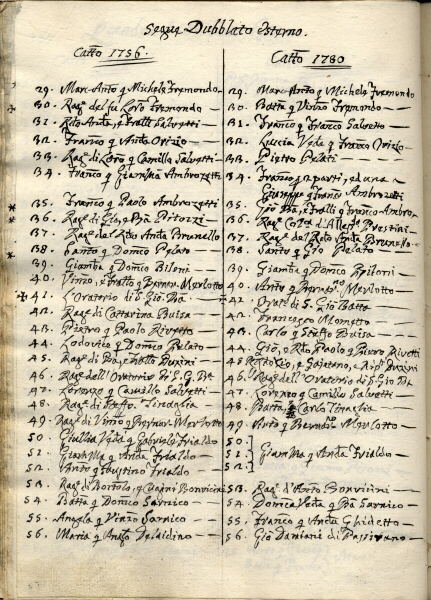 Segue Dubblato esterno.
Catto 1756.
29. Marc Anto q Michele Tremondo
30. Ragi del fu Loro Tremondo
31. Rdo Anto, e Fratlli Salvetti
32. Franco q Anto Orizio
33. Ragi di Loro q Camillo Salvetti
34. Franco q Giam Ambrozetti
35. Franco q Paolo Ambrozetti
36. Ragi di Gio, q Bta Pitozzi
37. Ragi del Rdo Anto Brunello
38. Santo q Domco Pelato
39. Giamba q Domco Biloni
40. Vinzo, e Fratto q Bernar Merlotto
41. L'Oratorio di S. Gio Ba
42. Ragi di Cattarina Buisa
43. Pietro q Paolo Rivetto
44. Lodovico q Domco Pelato
45. Ragi di Buzini
46. Ragi dell'Oratorio di S. G. Bta
47. Lorenzo q Camillo Salvetti
48. Ragi di Steffo
49. Ragi di Vinzo q Bernar Merlotto
50. Giulia Vda q Gabriele Frialdo
51. q Anto Frialdo
52. Anto q Faustino Frialdo
53. Ragi di Bortolo, q Bonvicini
54. Batta q Domco Sarnico
55. Angela q Vinzo Sarnico
56. Maria q
Catto 1780
29. Marc Anto q Michele Tremondo
30. Batta q Vinzo Tremondo
31. Franco q Franco Salvetto
32. Luccia Vda q Franco Orizio
33. Pietro Pelati
34. Franco, pr 2 parti, ed una a
Giuseppe q Franco Ambrozetti
35. Gio Ba, e Fratlli q Franco Ambro
36. Prestini
37. Ragi del Rdo Anto Brunello
38. Santo q Gio Pelato
39. Giamba q Domco Piloni
40. Anto q Bernardno Merlotto
42. Orat. di S. Gio Batta
42. Francesco Mometto
43. Carlo q Steffo Buisa
44. Gio, e Rdo Paolo q Pietro Rivetti
45. e Gaetano, Buzini
46. Ragi dell'Oratorio di S. Gio Ba
47. Lorenzo q Camillo Salvetti
48. Batta q Carlo
49. Anto q Bernardno Merlotto
50.
51. Giam Ma q Anto Frialdo
52.
53. Ragi d'Anto Bonvicini
54. Domca Vda q Ba Sarnico
55. Franco q Anto Ghidetto
56. Gio Damiani di Passirano